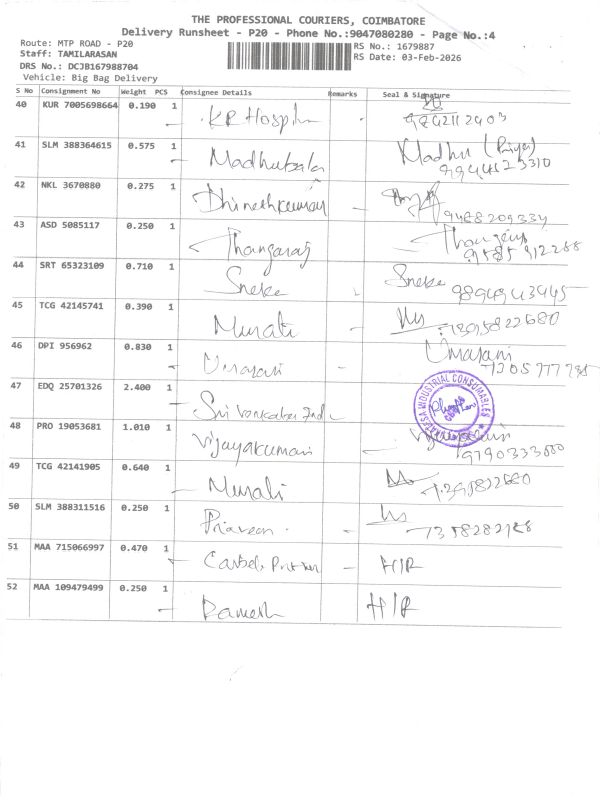 THE PROFESSIONAL COURIERS, COIMBATORE
Delivery Runsheet - P20 - Phone No.:9047080280 - Page No.:4
Route: MTP ROAD - P20
RS No.: 1679887
Staff: TAMILARASAN
RS Date: 03-Feb-2026
DRS No.: DCJB167988704
Vehicle: Big Bag Delivery
S No Consignment No Weight PCS Consignee Details Remarks Seal & Signature
40 KUR 7005698664 0.190 1 KR
41 SLM 388364615 0.575 1 Madhubala Madhu (Priya)
9944523310
42 NKL 3670880 0.275 1 Dhineshkumar
9488209334
43 ASD 5085117 0.250 1 Thangaraj
44 SRT 65323109 0.710 1 Sneke Sneke 9894943945
45 TCG 42145741 0.390 1 Murali
46 DPI 956962 0.830 1 Umarani Umarani
47 EDQ 25701326 2.400 1 Sri
INDUSTRIAL CONSUMABLES
48 PRO 19053681 1.010 1 Vijayakumari
9790333000
49 TCG 42141905 0.640 1 Murali
50 SLM 388311516 0.250 1 Praveen
51 MAA 715066997 0.470 1 H/R
52 MAA 109479499 0.250 1 Ramesh H/R